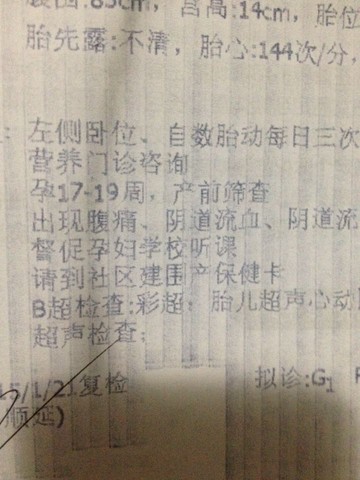 腹围:85cm, 宫高:14cm, 胎位
胎先露:不清, 胎心:144次/分,
左侧卧位、自数胎动每日三次
营养门诊咨询
孕17-19周, 产前筛查
出现腹痛、阴道流血、阴道流
督促孕妇学校听课
请到社区建围产保健卡
B超检查:彩超; 胎儿超声心动
超声检查;
15/1/21复检 拟诊:G1
顺延)